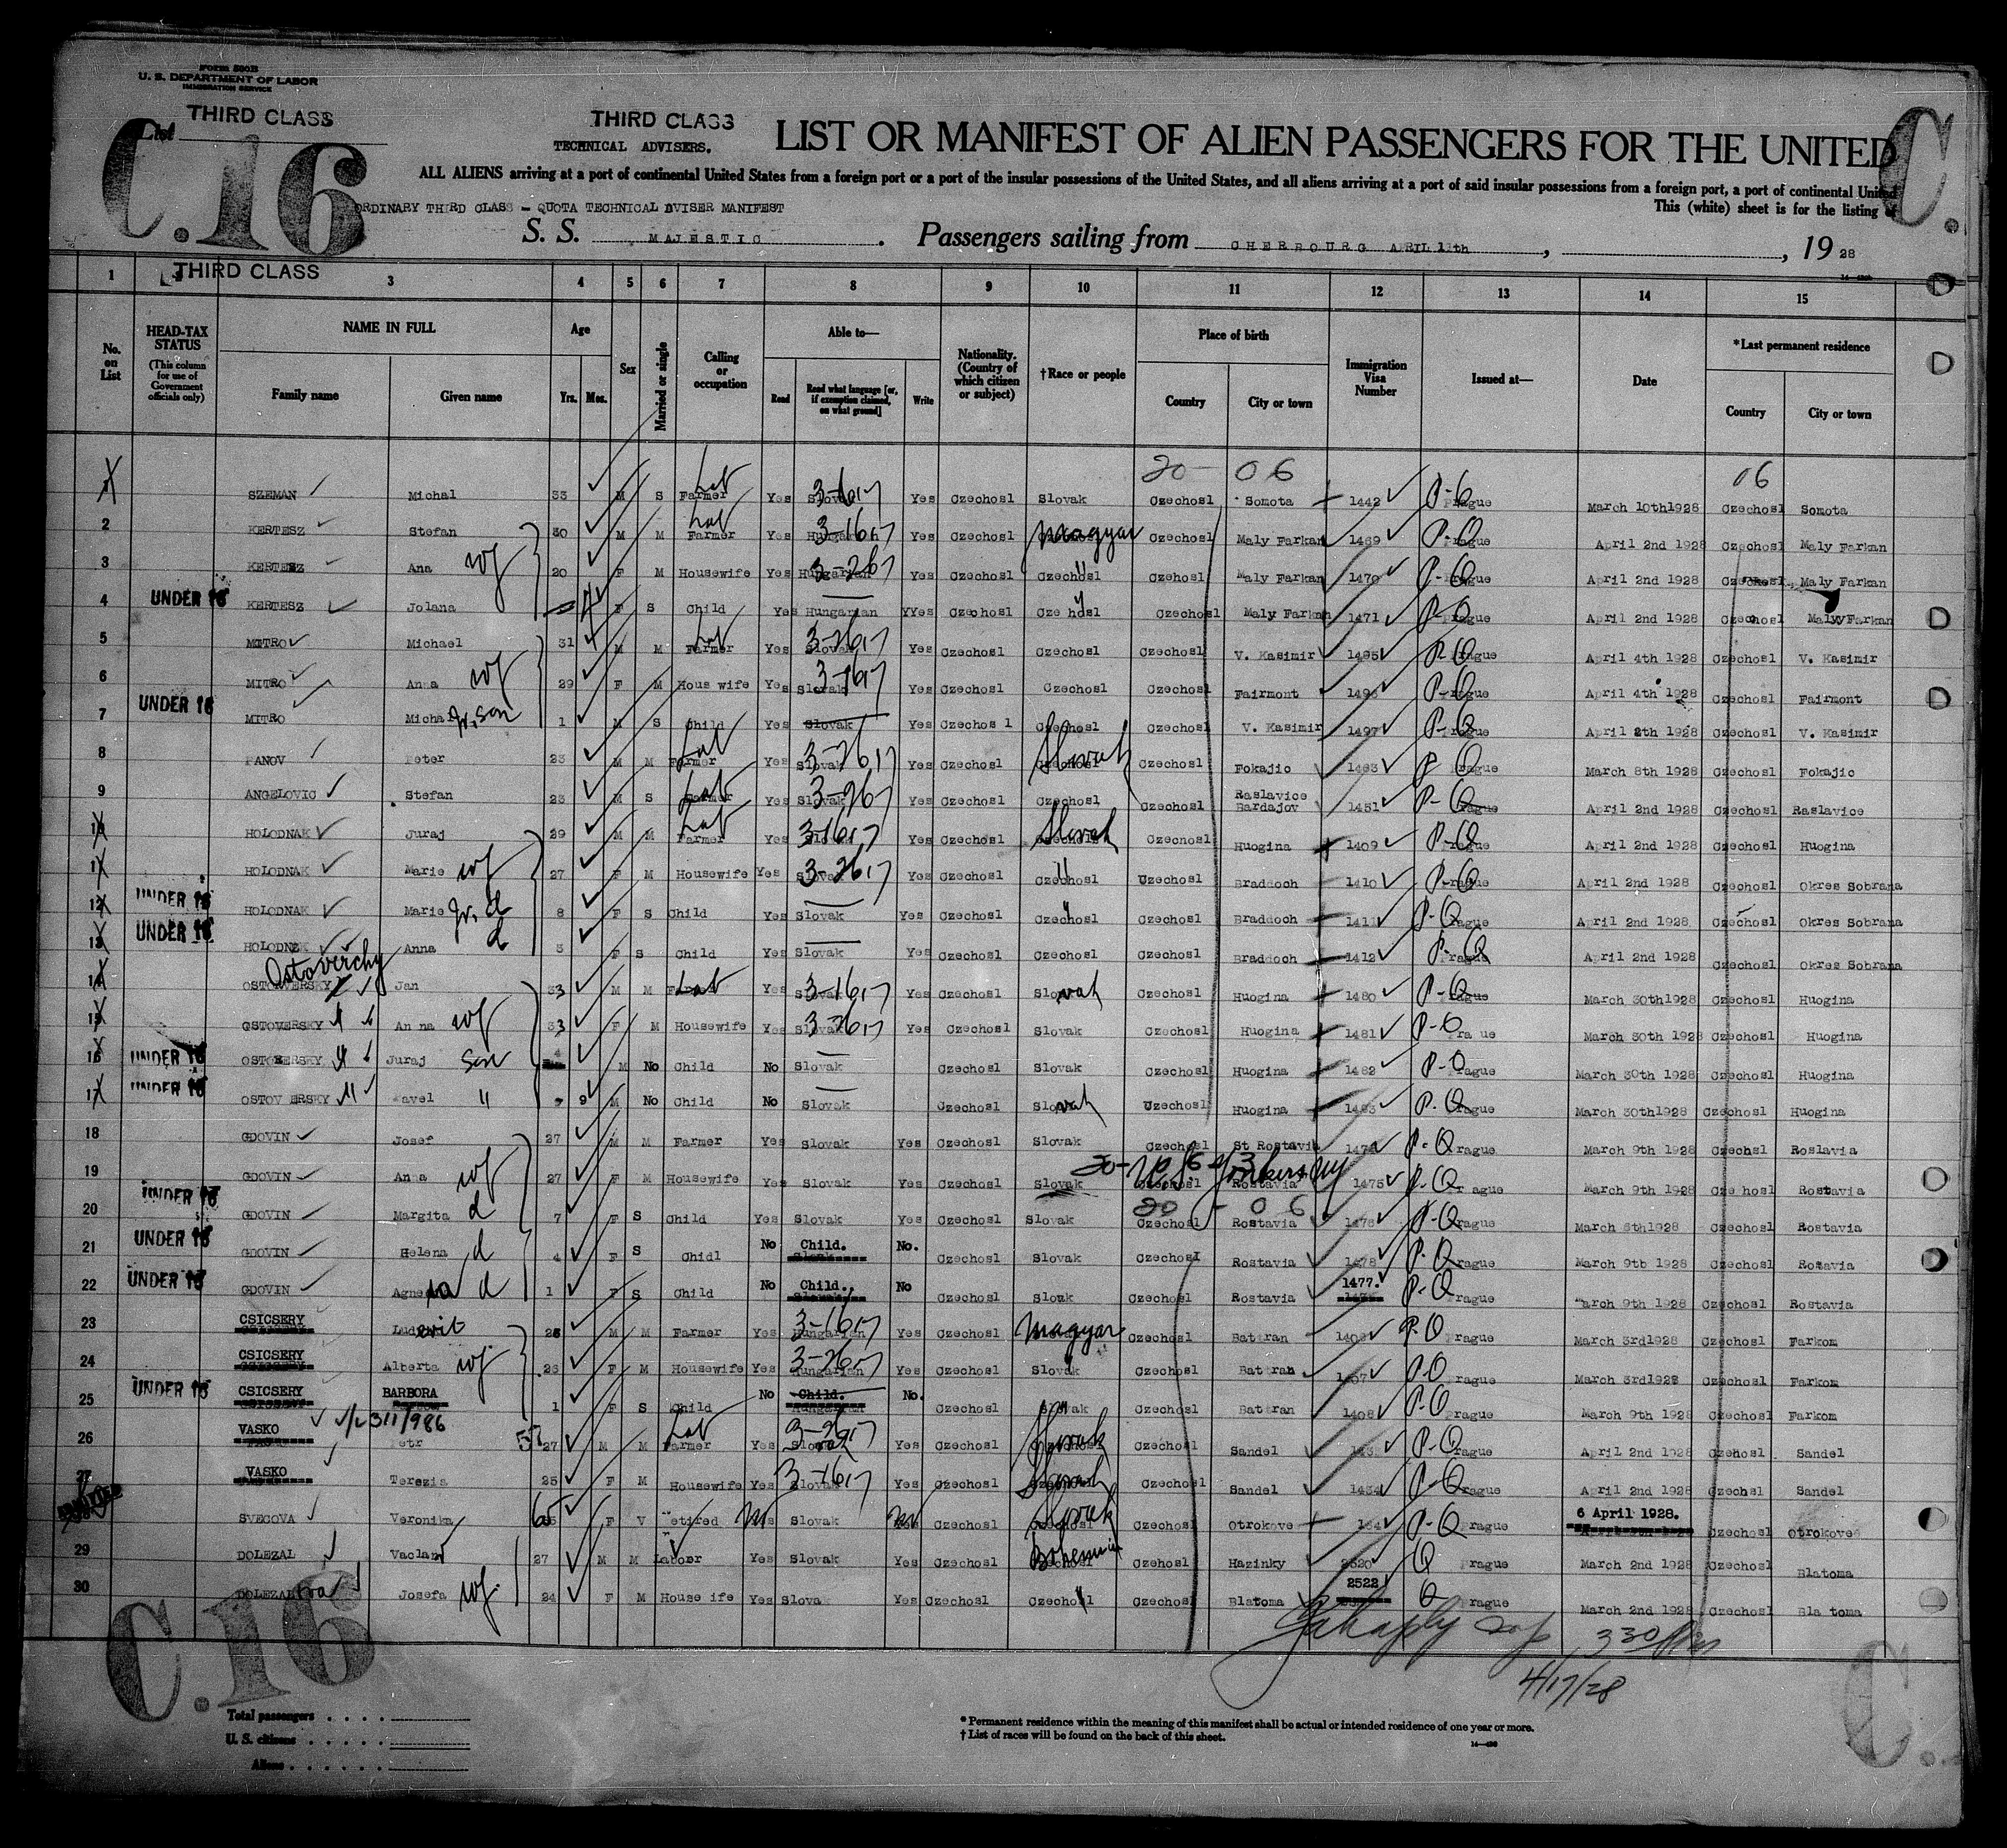 Form 500B
U. S. DEPARTMENT OF LABOR
IMMIGRATION SERVICE
THIRD CLASS
List
C.16
THIRD CLASS
TECHNICAL ADVISERS.
LIST OR MANIFEST OF ALIEN PASSENGERS FOR THE UNITED
C.
ALL ALIENS arriving at a port of continental United States from a foreign port or a port of the insular possessions of the United States, and all aliens arriving at a port of said insular possessions from a foreign port, a port of continental United
ORDINARY THIRD CLASS - QUOTA TECHNICAL DVISER MANIFEST
This (white) sheet is for the listing of
S. S. MAJESTIC. Passengers sailing from CHERBOURG APRIL, 19 28
THIRD CLASS
1 3 4 5 6 7 8 9 10 11 12 13 14 15
No. on List
HEAD-TAX STATUS (This column for use of Government officials only)
NAME IN FULL
Family name Given name
Age
Yrs. Mos.
Sex
Married or single
Calling or occupation
Able to—
Read Read what language [or, if exemption claimed, on what ground] Write
Nationality. (Country of which citizen or subject)
†Race or people
Place of birth
Country City or town
Immigration Visa Number
Issued at—
Date
*Last permanent residence
Country City or town
20 - 06 06
SZEMAN Michal 33 M S Farmer Yes Slovak Yes Czechosl Slovak Czechosl Somota 1442 Prague March 10th1928 Czechosl Somota
2 KERTESZ Stefan 30 M M Farmer Yes Hungarian Yes Czechosl Magyar Czechosl Maly Farkan 1469 Prague April 2nd 1928 Czechosl Maly Farkan
3 KERTESZ Ana wf 20 F M Housewife Yes Hungarian Yes Czechosl Czechosl Czehosl Maly Farkan 1470 Prague April 2nd 1928 Czechosl Maly Farkan
4 UNDER 16 KERTESZ Jolana F S Child Yes Hungarian YYes Czechosl Czechosl Czechosl Maly Farkan 1471 Prague April 2nd 1928 Czechosl Maly Farkan
5 MITRO Michael 31 M M Farmer Yes Slovak Yes Czechosl Czechosl Czechosl V. Kasimir 1495 Prague April 4th 1928 Czechosl V. Kasimir
6 MITRO Anna wf 29 F M Hous wife Yes Slovak Yes Czechosl Czechosl Czechosl Fairmont 1496 Prague April 4th 1928 Czechosl Fairmont
7 UNDER 16 MITRO Michal Jr, son 1 M S Child Yes Slovak Yes Czechos l Czechosl Czechosl V. Kasimir 1497 Prague Czechosl V. Kasimir
8 PANOV Peter 23 M M Farmer Yes Slovak Yes Czechosl Slovak Czechosl Fokajic 1463 Prague March 8th 1928 Czechosl Fokajic
9 ANGELOVIC Stefan 23 M S Farmer Yes Slovak Yes Czechosl Czechosl Czechosl Raslavice Bardajov 1451 Prague April 2nd 1928 Czechosl Raslavice
10 HOLODNAK Juraj 29 M M Farmer Yes Slovak Yes Czechosl Slovak Czecnosl Huogina 1409 Prague April 2nd 1928 Czechosl Huogina
11 HOLODNAK Marie wf 27 F M Housewife Yes Slovak Yes Czechosl Czechosl Czechosl Braddoch 1410 Prague April 2nd 1928 Czechosl Okres Sobrana
12 UNDER 16 HOLODNAK Marie Jr, d 8 F S Child Yes Slovak Yes Czechosl Czechosl Czechosl Braddoch 1411 Prague April 2nd 1928 Czechosl Okres Sobrana
13 UNDER 16 HOLODNAK Anna d F S Child Yes Slovak Yes Czechosl Czechosl Czechosl Braddoch 1412 Prague April 2nd 1928 Czechosl Okres Sobrana
14 Ostoverchy OSTOVERSKY Jan 33 M M Farmer Yes Slovak Yes Czechosl Slovak Czechosl Huogina 1480 Prague March 30th1928 Czechosl Huogina
15 OSTOVERSKY Anna wf 33 F M Housewife Yes Slovak Yes Czechosl Slovak Czechosl Huogina 1481 Pra ue March 30th 1928 Czechosl Huogina
16 UNDER 16 OSTOVERSKY Juraj son 4 M No Child No Slovak Czechosl Slovak Czechosl Huogina 1482 Prague March 30th 1928 Czechosl Huogina
17 UNDER 16 OSTOV ERSKY Pavel " 9 M No Child No Slovak Czechosl Slovak Czechosl Huogina 1483 Prague March 30th1928 Czechosl Huogina
18 GDOVIN Josef 27 M M Farmer Yes Slovak Yes Czechosl Slovak Czechosl St Rostavia Prague March 9th 1928 Czechosl Roslavia
19 GDOVIN Anna wf 27 F M Housewife Yes Slovak Yes Czechosl Slovak Yonkers NY Rostavia 1475 Pr ague March 9th 1928 Cze hosl Rostavia
20 - 06
20 UNDER 16 GDOVIN Margita d 7 F S Child Yes Slovak Yes Czechosl Slovak Czechosl Rostavia 1476 Prague Czechosl Rostavia
21 UNDER 16 GDOVIN Helena d 4 F S Chidl No Child. No. Czechosl Slovak Czechosl Rostavia 1478 Prague March 9th 1928 Czechosl Rostavia
22 UNDER 16 GDOVIN d 1 F S Child No Child. No Czechosl Slovak Czechosl Rostavia 1477. Prague March 9th 1928 Czechosl Rostavia
23 CSICSERY Ludevit M M Farmer Yes Hungarian Yes Czechosl Magyar Czechosl Bat ran Prague March 3rd1928 Czechosl Farkom
24 CSICSERY Alberta wf F M Housewife Yes Hungarian Yes Czechosl Slovak Czechosl Bat ran Prague March 3rd1928 Czechosl Farkom
25 UNDER 16 CSICSERY BARBORA 1 F S Child No Child. No. Czechosl Slovak Czechosl Bat ran 1408 Prague March 9th 1928 Czechosl Farkom
26 VASKO Petr 27 M M Farmer Yes Slovak Yes Czechosl Slovak Czechosl Sandel Prague April 2nd 1928 Czehosl Sandel
27 VASKO Terezia 25 F M Housewife Yes Slovak Yes Czechosl Slovak Czechosl Sandel 1434 Prague April 2nd 1928 Czechsl Sandel
SVECOVA Veronika 65 F V etired Slovak Czechosl Slovak Czechosl Otrokove Prague 6 April 1928. Czechosl Otrokove
29 DOLEZAL Vaclav 27 M M Labor Yes Slovak Yes Czechosl Bohemian Czehosl Hazinky 2520 Prague March 2nd 1928 Czechosl Blatoma
30 DOLEZAL Josefa wf. 24 F M House ife Yes Slova Yes Czechosl Czechosl Czechosl Blatoma 2522 Prague March 2nd 1928 Czechosl Bla toma
4/17/28
C.16
C.
Total passengers
U. S. citizens
Aliens
*Permanent residence within the meaning of this manifest shall be actual or intended residence of one year or more.
†List of races will be found on the back of this sheet.